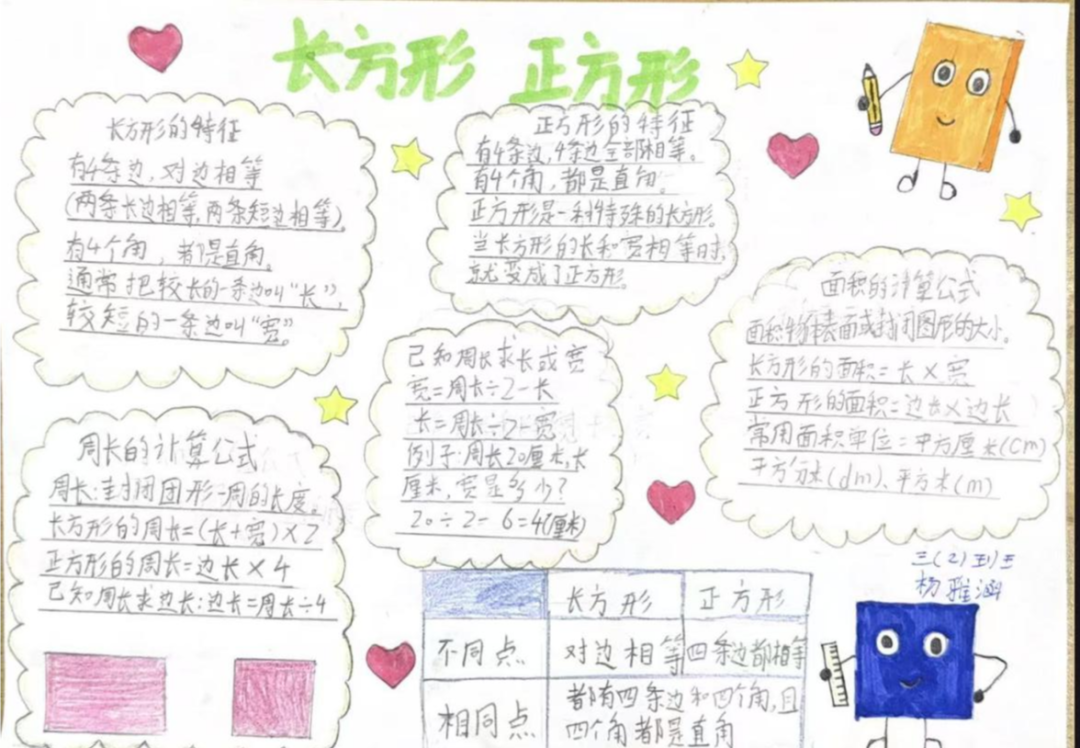 长方形 正方形
长方形的特征
有4条边，对边相等
(两条长边相等,两条短边相等)。
有4个角，都是直角。
通常把较长的一条边叫“长”，
较短的一条边叫“宽”。
正方形的特征
有4条边,4条边全部相等。
有4个角，都是直角。
正方形是一种特殊的长方形。
当长方形的长和宽相等时，
就变成了正方形。
面积的计算公式
面积:物体表面或封闭图形的大小。
长方形的面积=长×宽
正方形的面积=边长×边长
常用面积单位:平方厘米(cm)
平方分米(dm)、平方米(m)
已知周长求长或宽
宽=周长÷2-长
长=周长÷2-宽
例子:周长20厘米,长
厘米,宽是多少?
20÷2-6=4(厘米)
周长的计算公式
周长:封闭图形一周的长度。
长方形的周长=(长+宽)×2
正方形的周长=边长×4
已知周长求边长:边长=周长÷4
长方形 正方形
不同点 对边相等 四条边都相等
相同点 都有四条边和四个角,且
四个角都是直角
三(2)班
杨雅涵